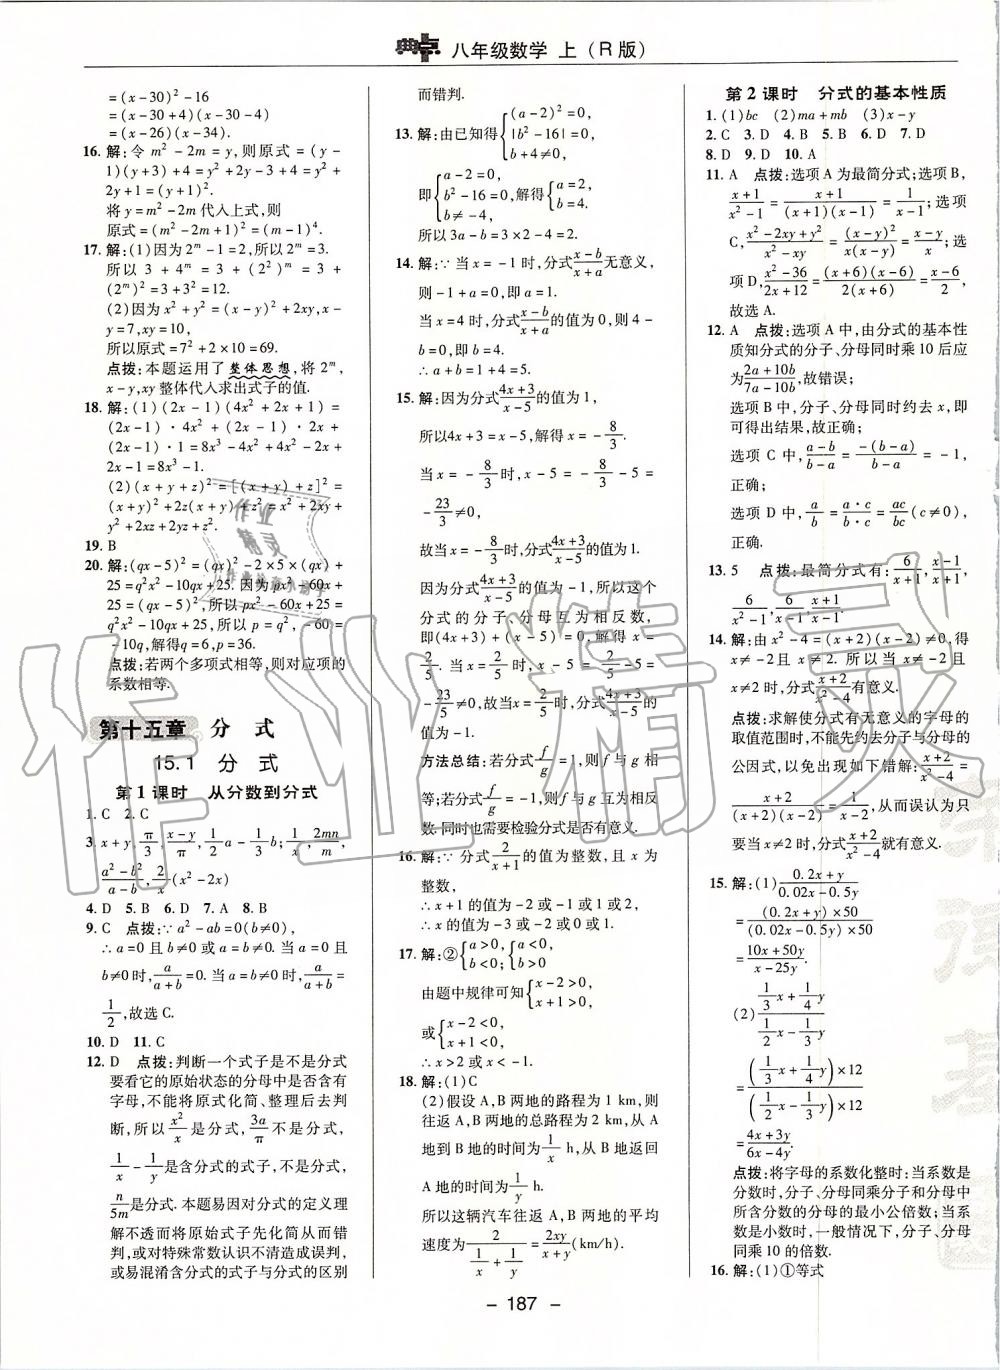 典点 八年级数学 上(R版)
=(x-30)²-16
=(x-30+4)(x-30-4)
=(x-26)(x-34).
16. 解:令 m²-2m=y,则原式=(y-
1)(y+3)+4=y²+2y-3+4=y²+
2y+1=(y+1)².
将y=m²-2m代入上式,则
原式=(m²-2m+1)²=(m-1)⁴.
17. 解:(1)因为2ᵐ-1=2,所以2ᵐ=3.
所以 3+4ᵐ=3+(2²)ᵐ=3+
(2ᵐ)²=3+3²=12.
(2)因为x²+y²=(x-y)²+2xy,x-
y=7,xy=10,
所以原式=7²+2×10=69.
点拨:本题运用了整体思想,将2ᵐ,
x-y,xy整体代入求出式子的值.
18. 解:(1)(2x-1)(4x²+2x+1)=
(2x-1)·4x²+(2x-1)·2x+
(2x-1)·1=8x³-4x²+4x²-2x+
2x-1=8x³-1.
(2)(x+y+z)²=[(x+y)+z]²=
(x+y)²+2z(x+y)+z²=x²+2xy+
y²+2xz+2yz+z².
19. B
20. 解:(qx-5)²=(qx)²-2×5×(qx)+
25=q²x²-10qx+25.因为px²-60x+
25=(qx-5)²,所以px²-60x+25=
q²x²-10qx+25,所以p=q²,-60=
-10q,解得q=6,p=36.
点拨:若两个多项式相等,则对应项的
系数相等.
第十五章 分式
15.1 分式
第1课时 从分数到分式
1. C 2. C
3. x+y, π/3, (x-y)/π, 1/2 a-1/3 b; 1/x, 2mn/m,
(a²-b²)/(a-b), 2/x (x²-2x)
4. D 5. B 6. D 7. A 8. B
9. C 点拨:∵a²-ab=0(b≠0),
∴a=0且b≠0或a=b≠0.当a=0且
b≠0时,a/(a+b)=0.当a=b≠0时,a/(a+b)=
1/2,故选C.
10. D 11. C
12. D 点拨:判断一个式子是不是分式
要看它的原始状态的分母中是否含有
字母,不能将原式化简、整理后去判
断,所以x²/x是分式,3a/π不是分式,
1/x-1/π是含分式的式子,不是分式,
n/5m是分式.本题易因对分式的定义理
解不透而将原始式子先化简从而错
判,或对特殊常数认识不清造成误判,
或易混淆含分式的式子与分式的区别
而错判.
13. 解:由已知得{(a-2)²=0, |b²-16|=0, b+4≠0,
即{a-2=0, b²-16=0, b≠-4,解得{a=2, b=4.
所以3a-b=3×2-4=2.
14. 解:∵当x=-1时,分式(x-b)/(x+a)无意义,
则-1+a=0,即a=1.
当x=4时,分式(x-b)/(x+a)的值为0,则4-
b=0,即b=4.
∴a+b=1+4=5.
15. 解:因为分式(4x+3)/(x-5)的值为1,
所以4x+3=x-5,解得x=-8/3.
当x=-8/3时,x-5=-8/3-5=
-23/3≠0,
故当x=-8/3时,分式(4x+3)/(x-5)的值为1.
因为分式(4x+3)/(x-5)的值为-1,所以这个
分式的分子、分母互为相反数,
即(4x+3)+(x-5)=0,解得x=
2/5.当x=2/5时,x-5=2/5-5=
-23/5≠0,故当x=2/5时,分式(4x+3)/(x-5)的
值为-1.
方法总结:若分式f/g=1,则f与g相
等;若分式f/g=-1,则f与g互为相反
数.同时也需要检验分式是否有意义.
16. 解:∵分式2/(x+1)的值为整数,且x为
整数,
∴x+1的值为-2或-1或1或2,
∴x的值为-3或-2或0或1.
17. 解:②{a>0, b<0;{a<0, b>0.
由题中规律可知{x-2>0, x+1>0,
或{x-2<0, x+1<0,
∴x>2或x<-1.
18. 解:(1)C
(2)假设A,B两地的路程为1 km,则
往返A,B两地的总路程为2 km,从A
地到B地的时间为1/x h,从B地返回
A地的时间为1/y h.
所以这辆汽车往返A,B两地的平均
速度为2/(1/x+1/y)=2xy/(x+y)(km/h).
第2课时 分式的基本性质
1. (1)bc (2)ma+mb (3)x-y
2. C 3. D 4. B 5. B 6. D 7. D
8. D 9. D 10. A
11. A 点拨:选项A为最简分式;选项B,
(x+1)/(x²-1)=(x+1)/((x+1)(x-1))=1/(x-1);选项
C,(x²-2xy+y²)/(x²-xy)=(x-y)²/(x(x-y))=(x-y)/x;选
项D,(x²-36)/(2x+12)=(x+6)(x-6)/(2(x+6))=(x-6)/2,
故选A.
12. A 点拨:选项A中,由分式的基本性
质知分式的分子、分母同时乘10后应
为(2a+10b)/(7a-10b),故错误;
选项B中,分子、分母同时约去x,即
可得出结果,故正确;
选项C中,(a-b)/(b-a)=-(b-a)/(b-a)=-1,
正确;
选项D中,a/b=(a·c)/(b·c)=ac/bc(c≠0),
正确.
13. 5 点拨:最简分式有:6/(x+1),(x-1)/(x+1),
6/(x²-1),(x-1)/6,6/(x-1),(x+1)/(x-1).
14. 解:由x²-4=(x+2)(x-2)≠0,得
x≠-2且x≠2.所以当x≠-2且
x≠2时,分式(x+2)/(x²-4)有意义.
点拨:求解使分式有无意义的字母的
取值范围时,不能先约去分子与分母的
公因式,以免出现如下错解:(x+2)/(x²-4)=
(x+2)/((x+2)(x-2))=1/(x-2),从而误认为只
要当x≠2时,分式(x+2)/(x²-4)就有意义.
15. 解:(1)(0.2x+y)/(0.02x-0.5y)
=((0.2x+y)×50)/((0.02x-0.5y)×50)
=(10x+50y)/(x-25y).
(2)(1/3 x+1/4 y)/(1/2 x-1/3 y)
=((1/3 x+1/4 y)×12)/((1/2 x-1/3 y)×12)
=(4x+3y)/(6x-4y).
点拨:将字母的系数化整时:当系数是
分数时,分子、分母同乘分子和分母中
所含分数的分母的最小公倍数;当系
数是小数时,一般情况下,分子、分母
同乘10的倍数.
16. 解:(1)①等式
- 187 -
作业精灵